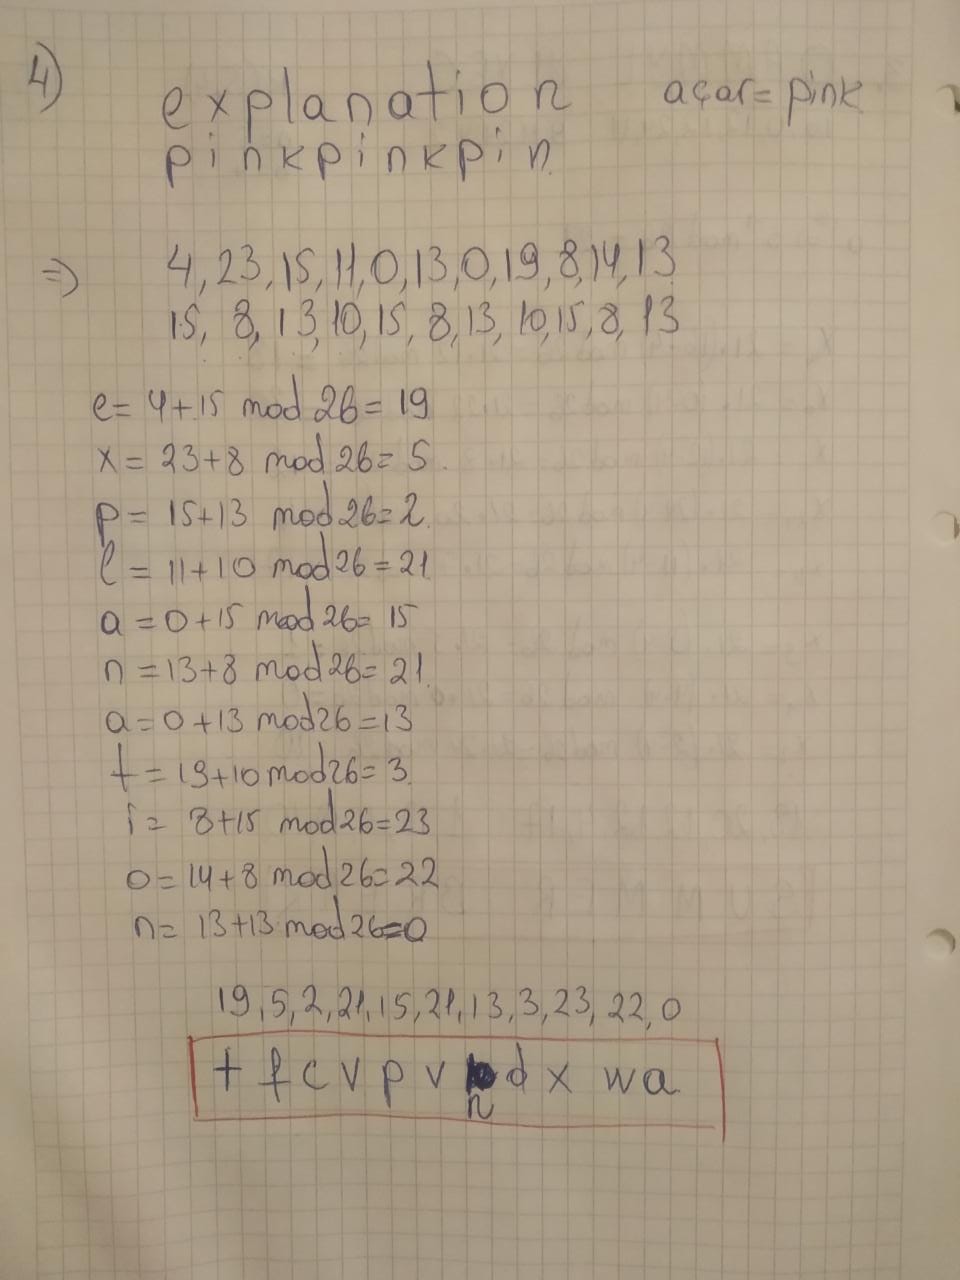 4)
explanation açar= pink
pinkpinkpin
=> 4, 23, 15, 11, 0, 13, 0, 19, 8, 14, 13
15, 8, 13, 10, 15, 8, 13, 10, 15, 8, 13
e= 4+15 mod 26= 19
x= 23+8 mod 26= 5
p= 15+13 mod 26= 2
l= 11+10 mod 26= 21
a= 0+15 mod 26= 15
n= 13+8 mod 26= 21
a= 0+13 mod 26= 13
t= 19+10 mod 26= 3
i= 8+15 mod 26= 23
o= 14+8 mod 26= 22
n= 13+13 mod 26= 0
19, 5, 2, 21, 15, 21, 13, 3, 23, 22, 0
t f c v p v n d x w a